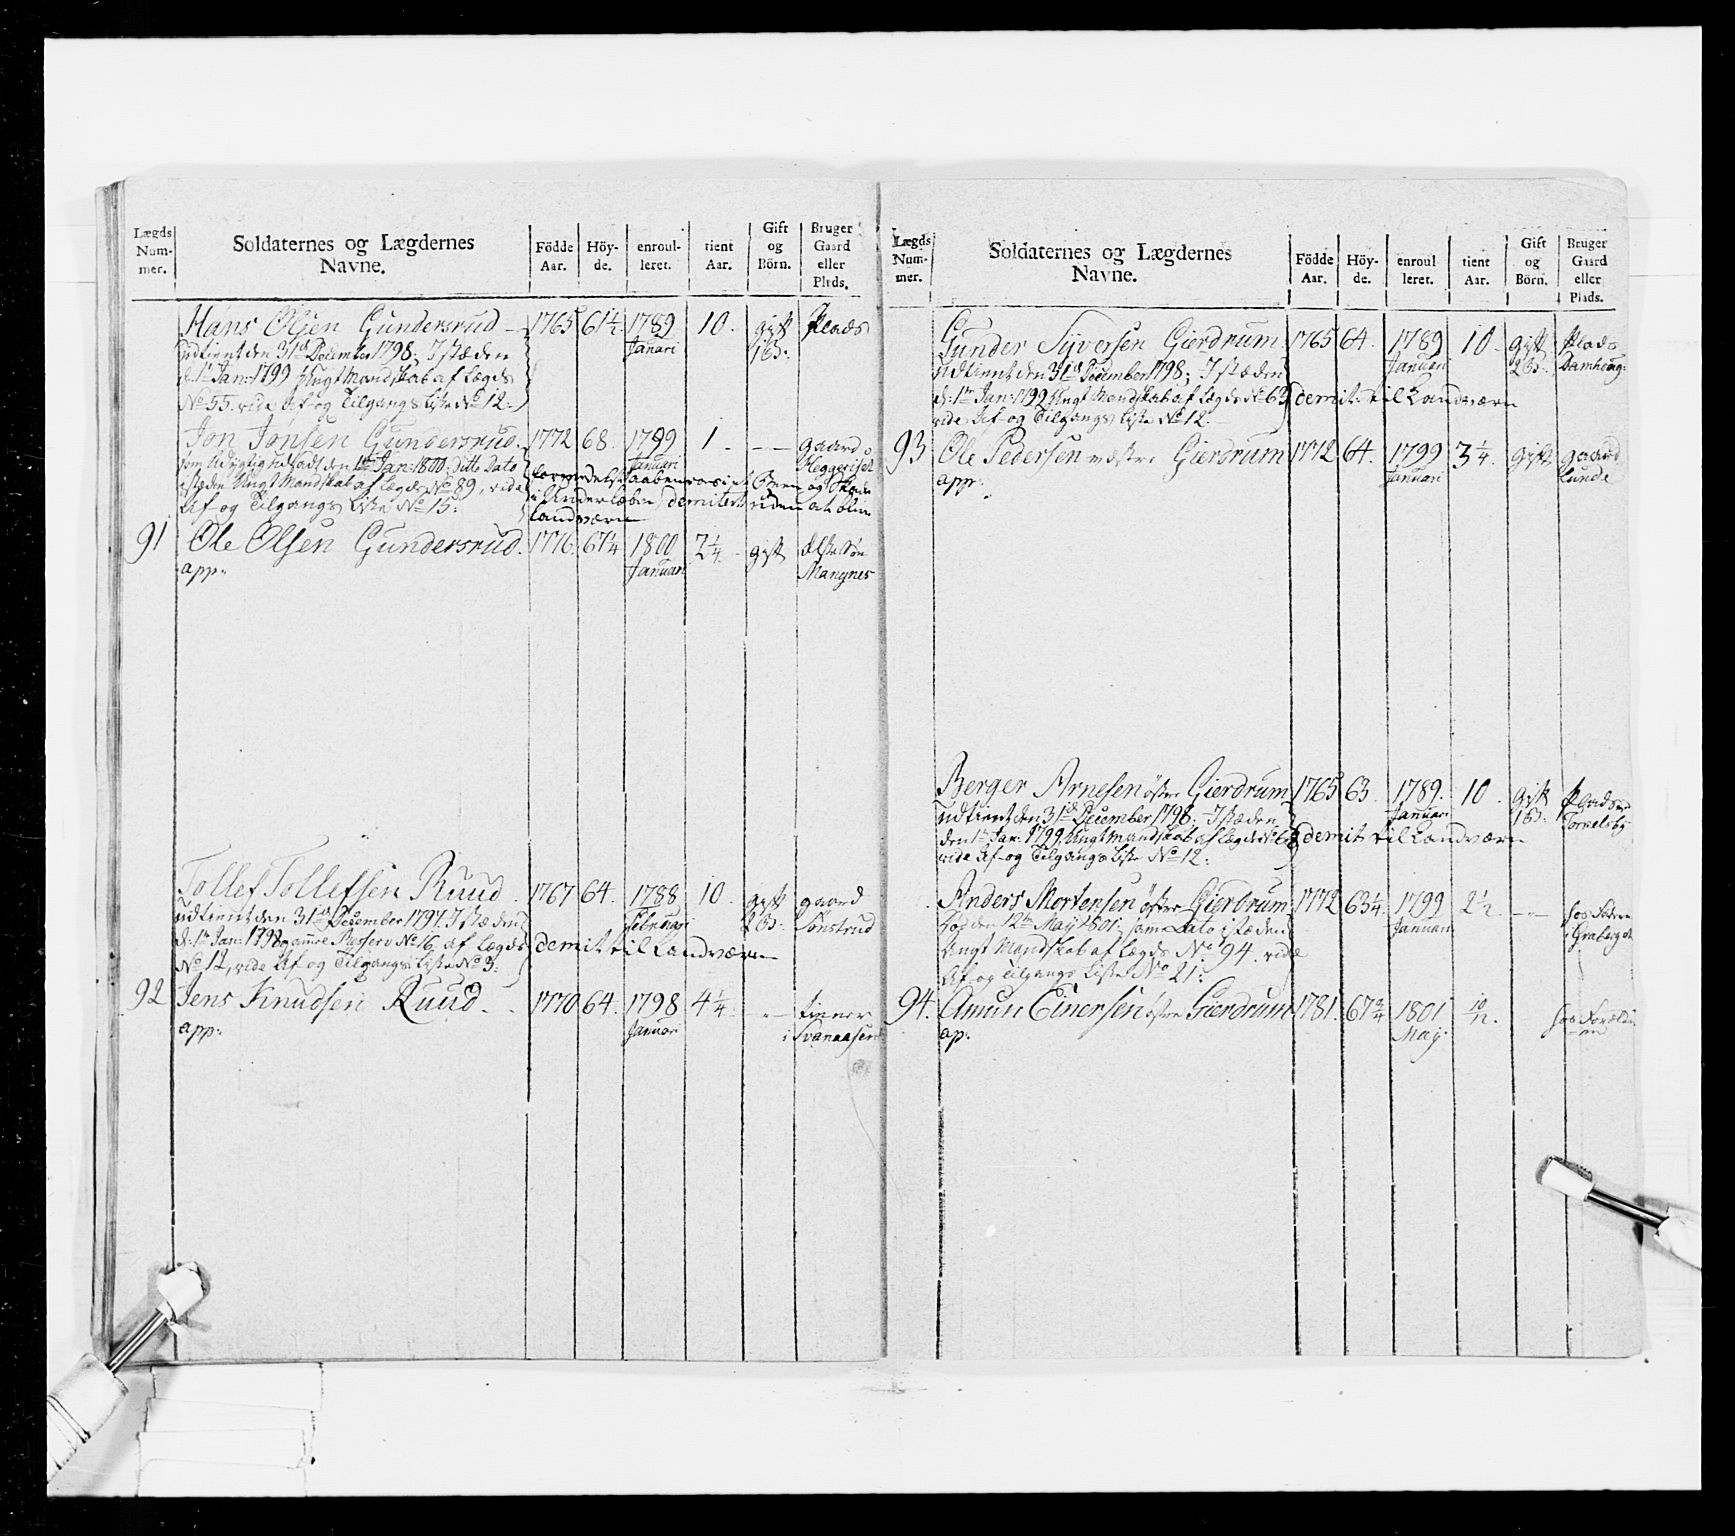 Lægds Num- mer. Soldaternes og Lægdernes Navne. Födde Aar. Höy- de. enroul- leret. tient Aar. Gift og Börn. Bruger Gaard eller Plads.
Hans Olsen Gundersrud 1765 61½ 1789 Januari 10. gift 1 B: Plads
udtient den 31te December 1798; I stæden
d: 1te Jan: 1799 ungt Mandskab af Lægds
No 55. vide Af- og Tilgangs Liste No 12.
Jon Jonsen Gundersrud. 1772 68. 1799 Januari 1 - - - gaard Heggeriset
som Udygtig udsadt den 1te Jan: 1800. Ditto Dato
i stæden Ungt Mandskab af Lægds No 89, vide
Af- og Tilgangs Liste No 15:
formedelst aabenvasiet Been og Skade
i Underlæben demitert uden at blive
Landværn
91 Ole Olsen Gundersrud. 1776. 67¼ 1800 Januari 2¼. gift Mangnes
app:
Tollef Tollefsen Ruud. 1767 64. 1788 Februari 10. gift 2 B: gaard Sønstrud
udtient den 31te December 1797. I stæden
d: 1te Jan: 1798 af Lægds
No 12, vide Af- og Tilgangs Liste No 3:
demit til Landværn
92 Jens Knudsen Ruud. 1770 64. 1798 Januari 4¼. - - tiener i Svanaasen
app:
Lægds Num- mer. Soldaternes og Lægdernes Navne. Födde Aar. Höy- de. enroul leret. tient Aar. Gift og Börn. Bruger Gaard eller Plads.
Gunder Syversen Gierdrum 1765 64. 1789 Januari 10 - gift 2 B: Plads Damhoug:
udtient den 31te December 1798; I stæden
d: 1te Jan: 1799 Ungt Mandskab af Lægds No 63 demit: til Landværn
vide Af- og Tilgangs Liste No 12.
93 Ole Pedersen mæstre Gierdrum 1772 64. 1799 Januari 3¼. gift gaard Lunde
app:
Berger Arnesen østre Gierdrum 1765 63. 1789. Januari 10. gift 1 B: Plads Tornelsby:
udtient den 31te December 1798; I stæden
den 1te Jan: 1799, Ungt Mandskab af Lægds demit til Landværn
vide Af- og Tilgangs Liste No 12:
Anders Mortensen østre Gierdrum 1772 63¼ 1799 Januari 2½ - - hos
død den 12te May 1801; samme Dato i stæden
Ungt Mandskab af Lægds No 94. vide
Af og Tilgangs Liste No 21:
94. Amun Einersen østre Gierdrum 1781. 67¾ 1801 May. 10/12. hos Forældrene
ap: